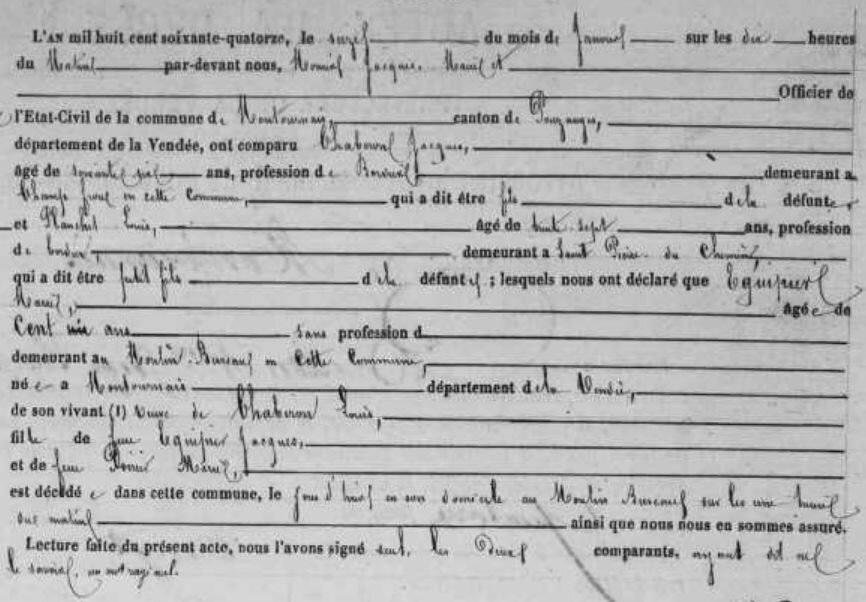 L'AN mil huit cent soixante-quatorze, le seize du mois de Janvier sur les dix heures
du Matin par-devant nous, Jacques, Officier de
l'Etat-Civil de la commune de Montournais, canton de Pouzauges,
département de la Vendée, ont comparu Chabiron Jacques,
âgé de soixante ans, profession de demeurant a
Champ en cette Commune, qui a dit être fils de la défunte
et Planchet Louis, âgé de trente sept ans, profession
de demeurant a Saint Pierre du Chemin,
qui a dit être petit fils de la défunte ; lesquels nous ont déclaré que Equipier
Marie, âgée de
Cent un ans sans profession d
demeurant au Moulin Bureau en Cette Commune,
née a Montournais département de la Vendée,
de son vivant (1) veuve de Chabiron Louis,
fille de feu Equipier Jacques,
et de feue Marie,
est décédée dans cette commune, le jour d'hier en son domicile au Moulin Bureau sur les une heure
du matin ainsi que nous nous en sommes assuré.
Lecture faite du présent acte, nous l'avons signé seul, les Deux comparants, ayant dit ne
le savoir, un mot rayé nul.